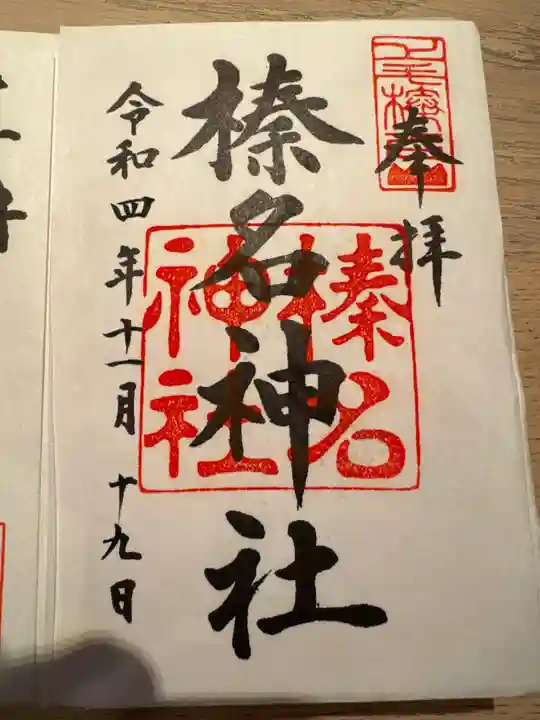 奉拝
榛名神社
榛名
神社
令和四年十一月十九日